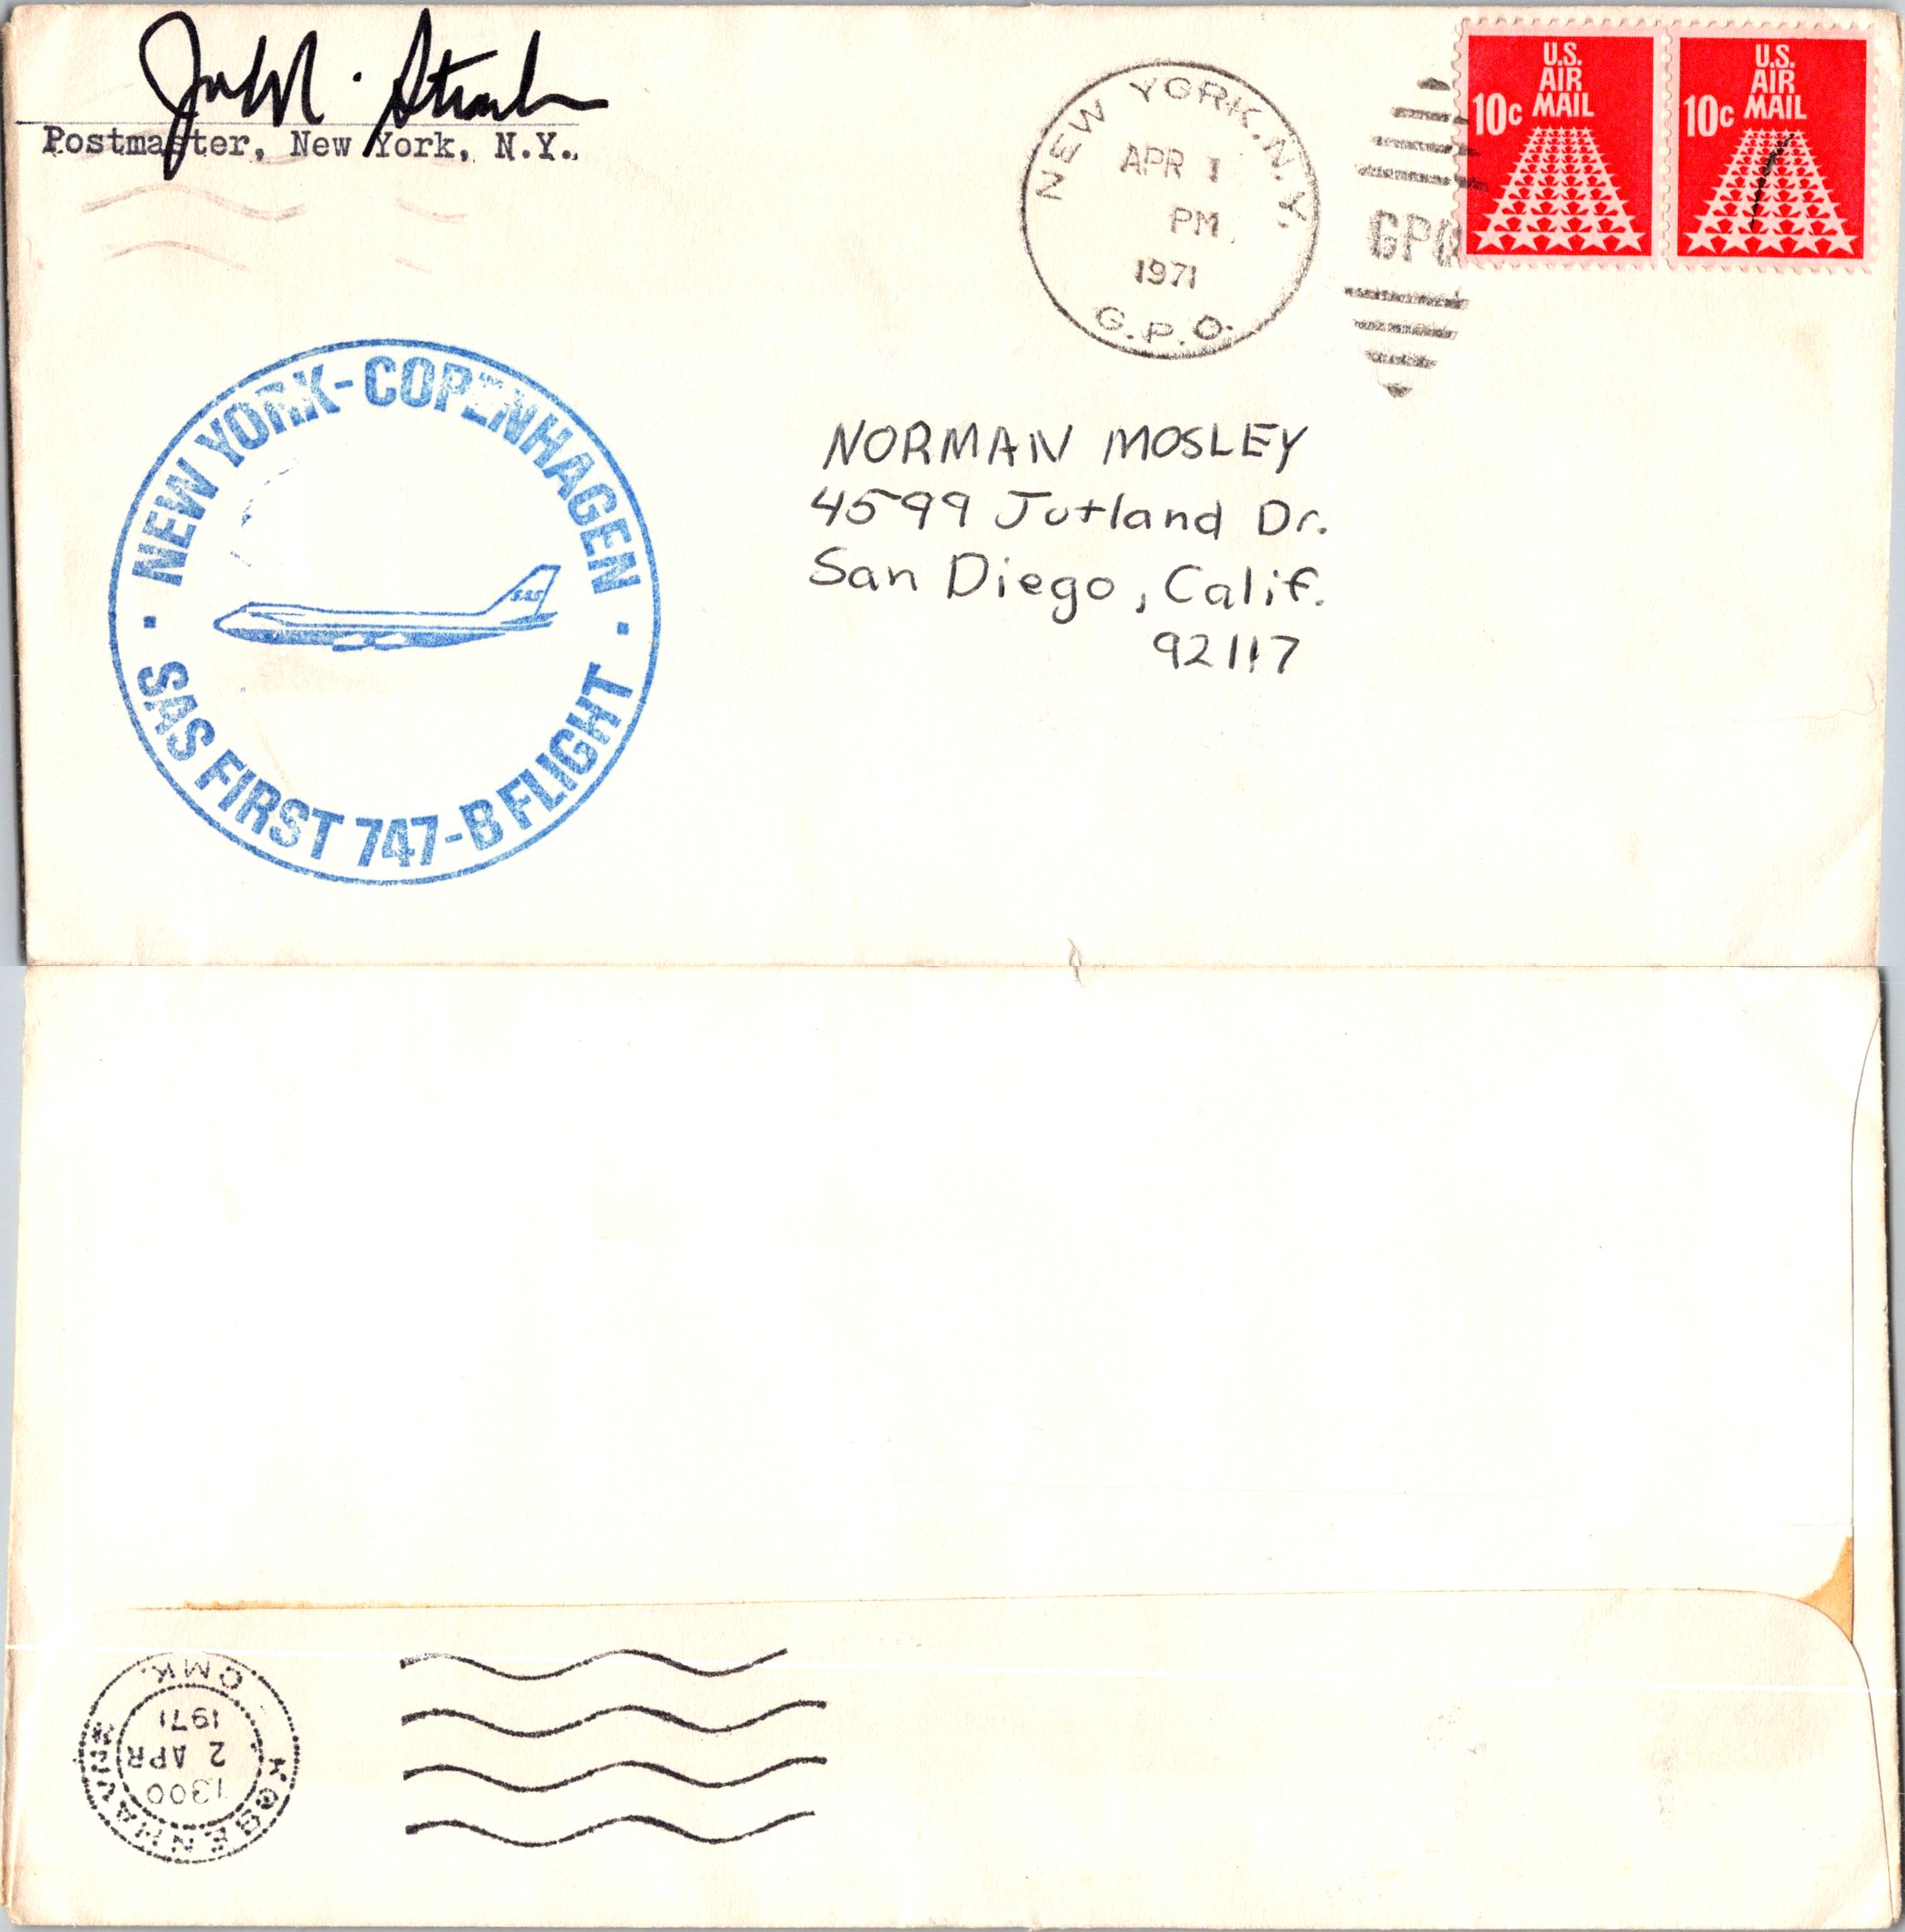 Postmaster, New York, N.Y.
NEW YORK, N.Y.
APR 1
PM
1971
G.P.O.
GPO
U.S.
AIR
10c MAIL
U.S.
AIR
10c MAIL
NEW YORK-COPENHAGEN
SAS
SAS FIRST 747-B FLIGHT
NORMAN MOSLEY
4599 Jutland Dr.
San Diego, Calif.
92117
KØBENHAVN
1300
2 APR
1971
OMK.